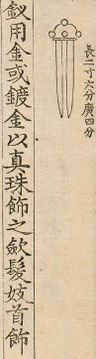 長二寸六分廣四分
釵用金或鍍金以真珠飾之斂髮妓首飾